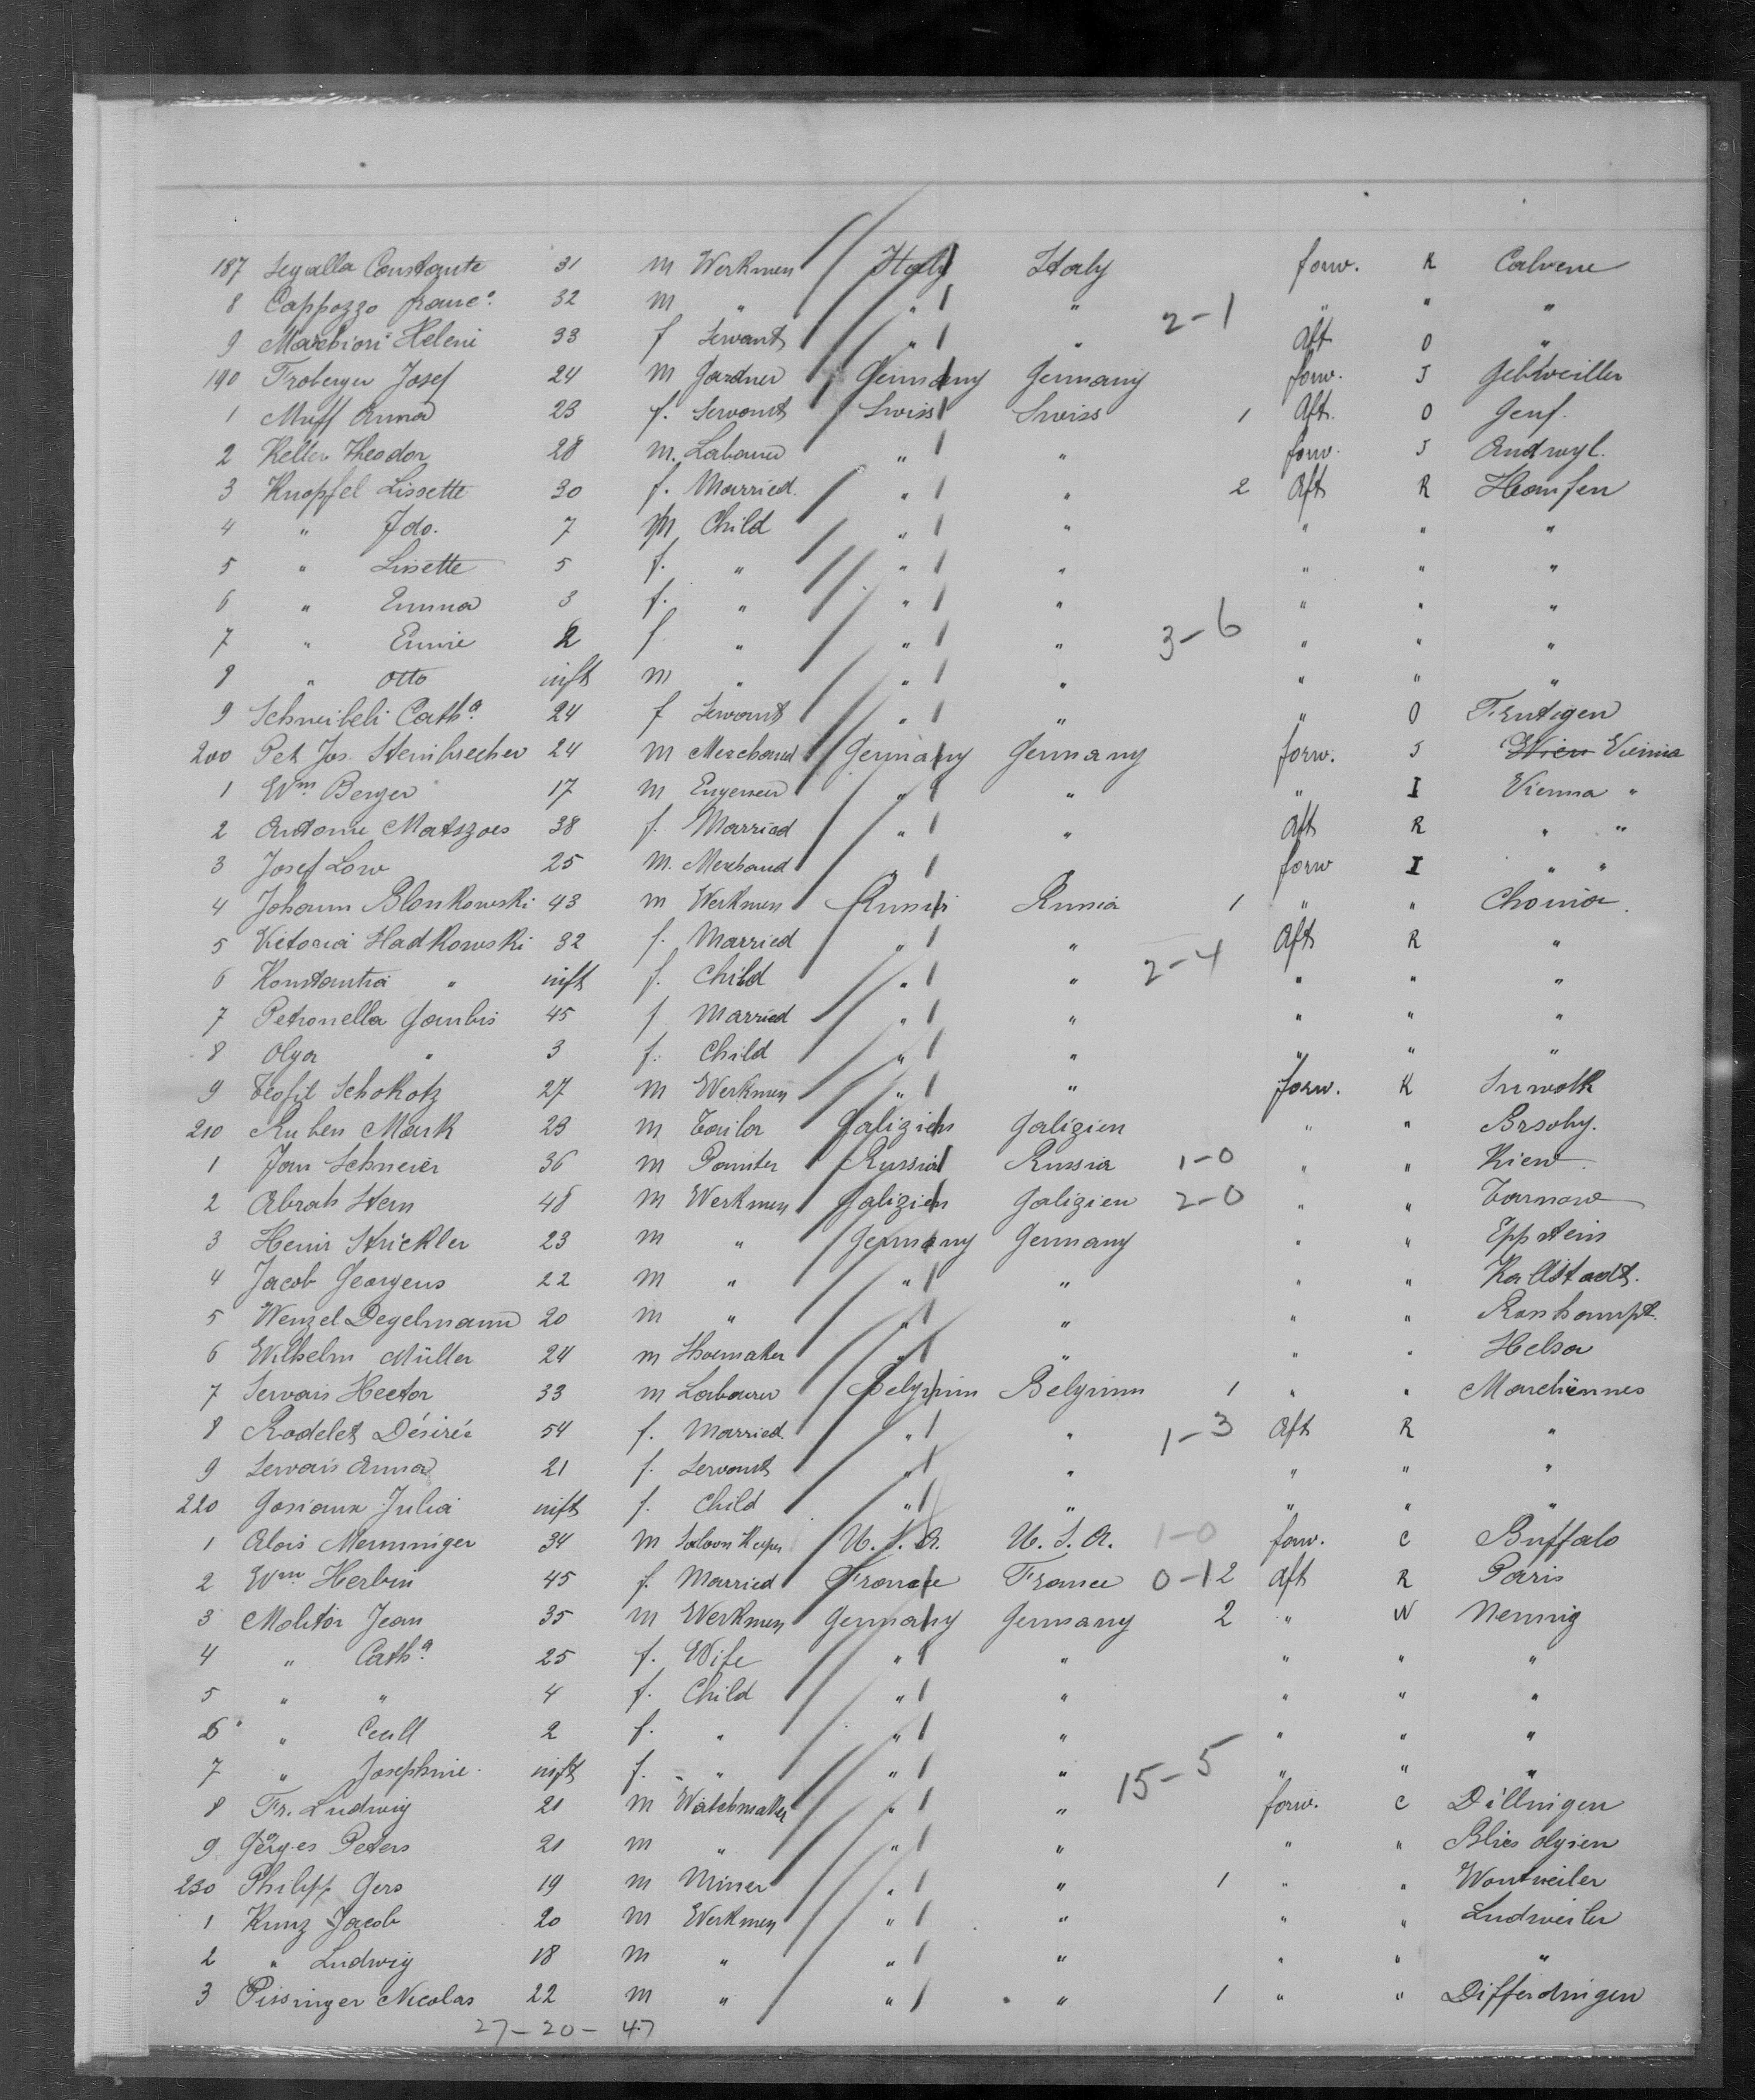 187 Segalla Constante 31 m Werkmen Italy Italy forw. K Calvene
8 Cappozzo Franc.o 32 m " " " 2-1 " " "
9 Marchiori Heleni 33 f Servant " " Aft O "
190 Froberger Josef 24 m Gardner Germany Germany forw. J Gebweiller
1 Muff Anna 23 f. Servant Swiss Swiss 1 Aft. O Genf.
2 Keller Theodor 28 m. Labourer " " forw. J Andwyl.
3 Knopfel Lissette 30 f. Married. " " 2 Aft R Hemfen
4 " Ido. 7 m Child " " " " "
5 " Lissette 5 f. " " " " " "
6 " Emma 3 f. " " " " " "
7 " Emmie 2 f " " " 3-6 " " "
8 " Otto inft m " " " " " "
9 Schneibeli Cath.a 24 f Servant " " " O Frutigen
200 Pet Jos. Steinbrecher 24 m Merchand Germany Germany forw. J Wien Vienna
1 Wm Berger 17 m Engeneer " " " I Vienna "
2 Antonie Matszoes 38 f. Married " " Aft R " "
3 Josef Low 25 m. Merchand " " forw I " "
4 Johann Blonkowski 43 m Werkmen Russia Russia 1 " " Chonia.
5 Victoria Hadkowski 32 f. Married " " Aft R "
6 Konstantia " inft f. Child " " 2-4 " " "
7 Petronella Janbis 45 f Married " " " " "
8 Olga " 3 f. Child " " " " "
9 Teofil Schokotz 27 m Werkmen " " forw. K Suwalk
210 Ruben Mark 23 m Tailor Galizien Galizien " " Brsohy.
1 Jan Schneier 36 m Painter Russia Russia 1-0 " " Kiew
2 Abrah Stern 48 m Werkmen Galizien Galizien 2-0 " " Tarnow
3 Henri Strickler 23 m " Germany Germany " " Eppstein
4 Jacob Georgens 22 m " " " " " Kallstadt.
5 Wenzel Degelmann 20 m " " " " " Rosshaupt.
6 Wilhelm Müller 24 m Shoemaker " " " " Helsa
7 Servais Hector 33 m Labourer Belgium Belgium 1 " " Marchiennes
8 Rodelet Désirée 54 f. Married. " " 1-3 Aft R "
9 Servais Anna 21 f. Servant " " " " "
220 Gosiaux Julia inft f. Child " " " " "
1 Alois Memminger 34 m Saloon Keeper U.S.A. U.S.A. 1-0 forw. C Buffalo
2 Wm Herbin 45 f. Married France France 0-1 2 Aft R Paris
3 Molitor Jean 35 m Werkmen Germany Germany 2 " W Nennig
4 " Cath.a 25 f. Wife " " " " "
5 " " 4 f. Child " " " " "
6 " Cecill 2 f. " " " " " "
7 " Josephine. inft f. " " " 15-5 " " "
8 Fr. Ludwig 21 m Watchmaker " " forw. C Dillingen
9 Görges Peters 21 m " " " " "
230 Philipp Gers 19 m Miner " " 1 " " Wontweiler
1 Kunz Jacob 20 m Werkmen " " " " Ludweiler
2 " Ludwig 18 m " " " " " "
3 Pissinger Nicolas 22 m " " " 1 " " Differdingen
27-20-47